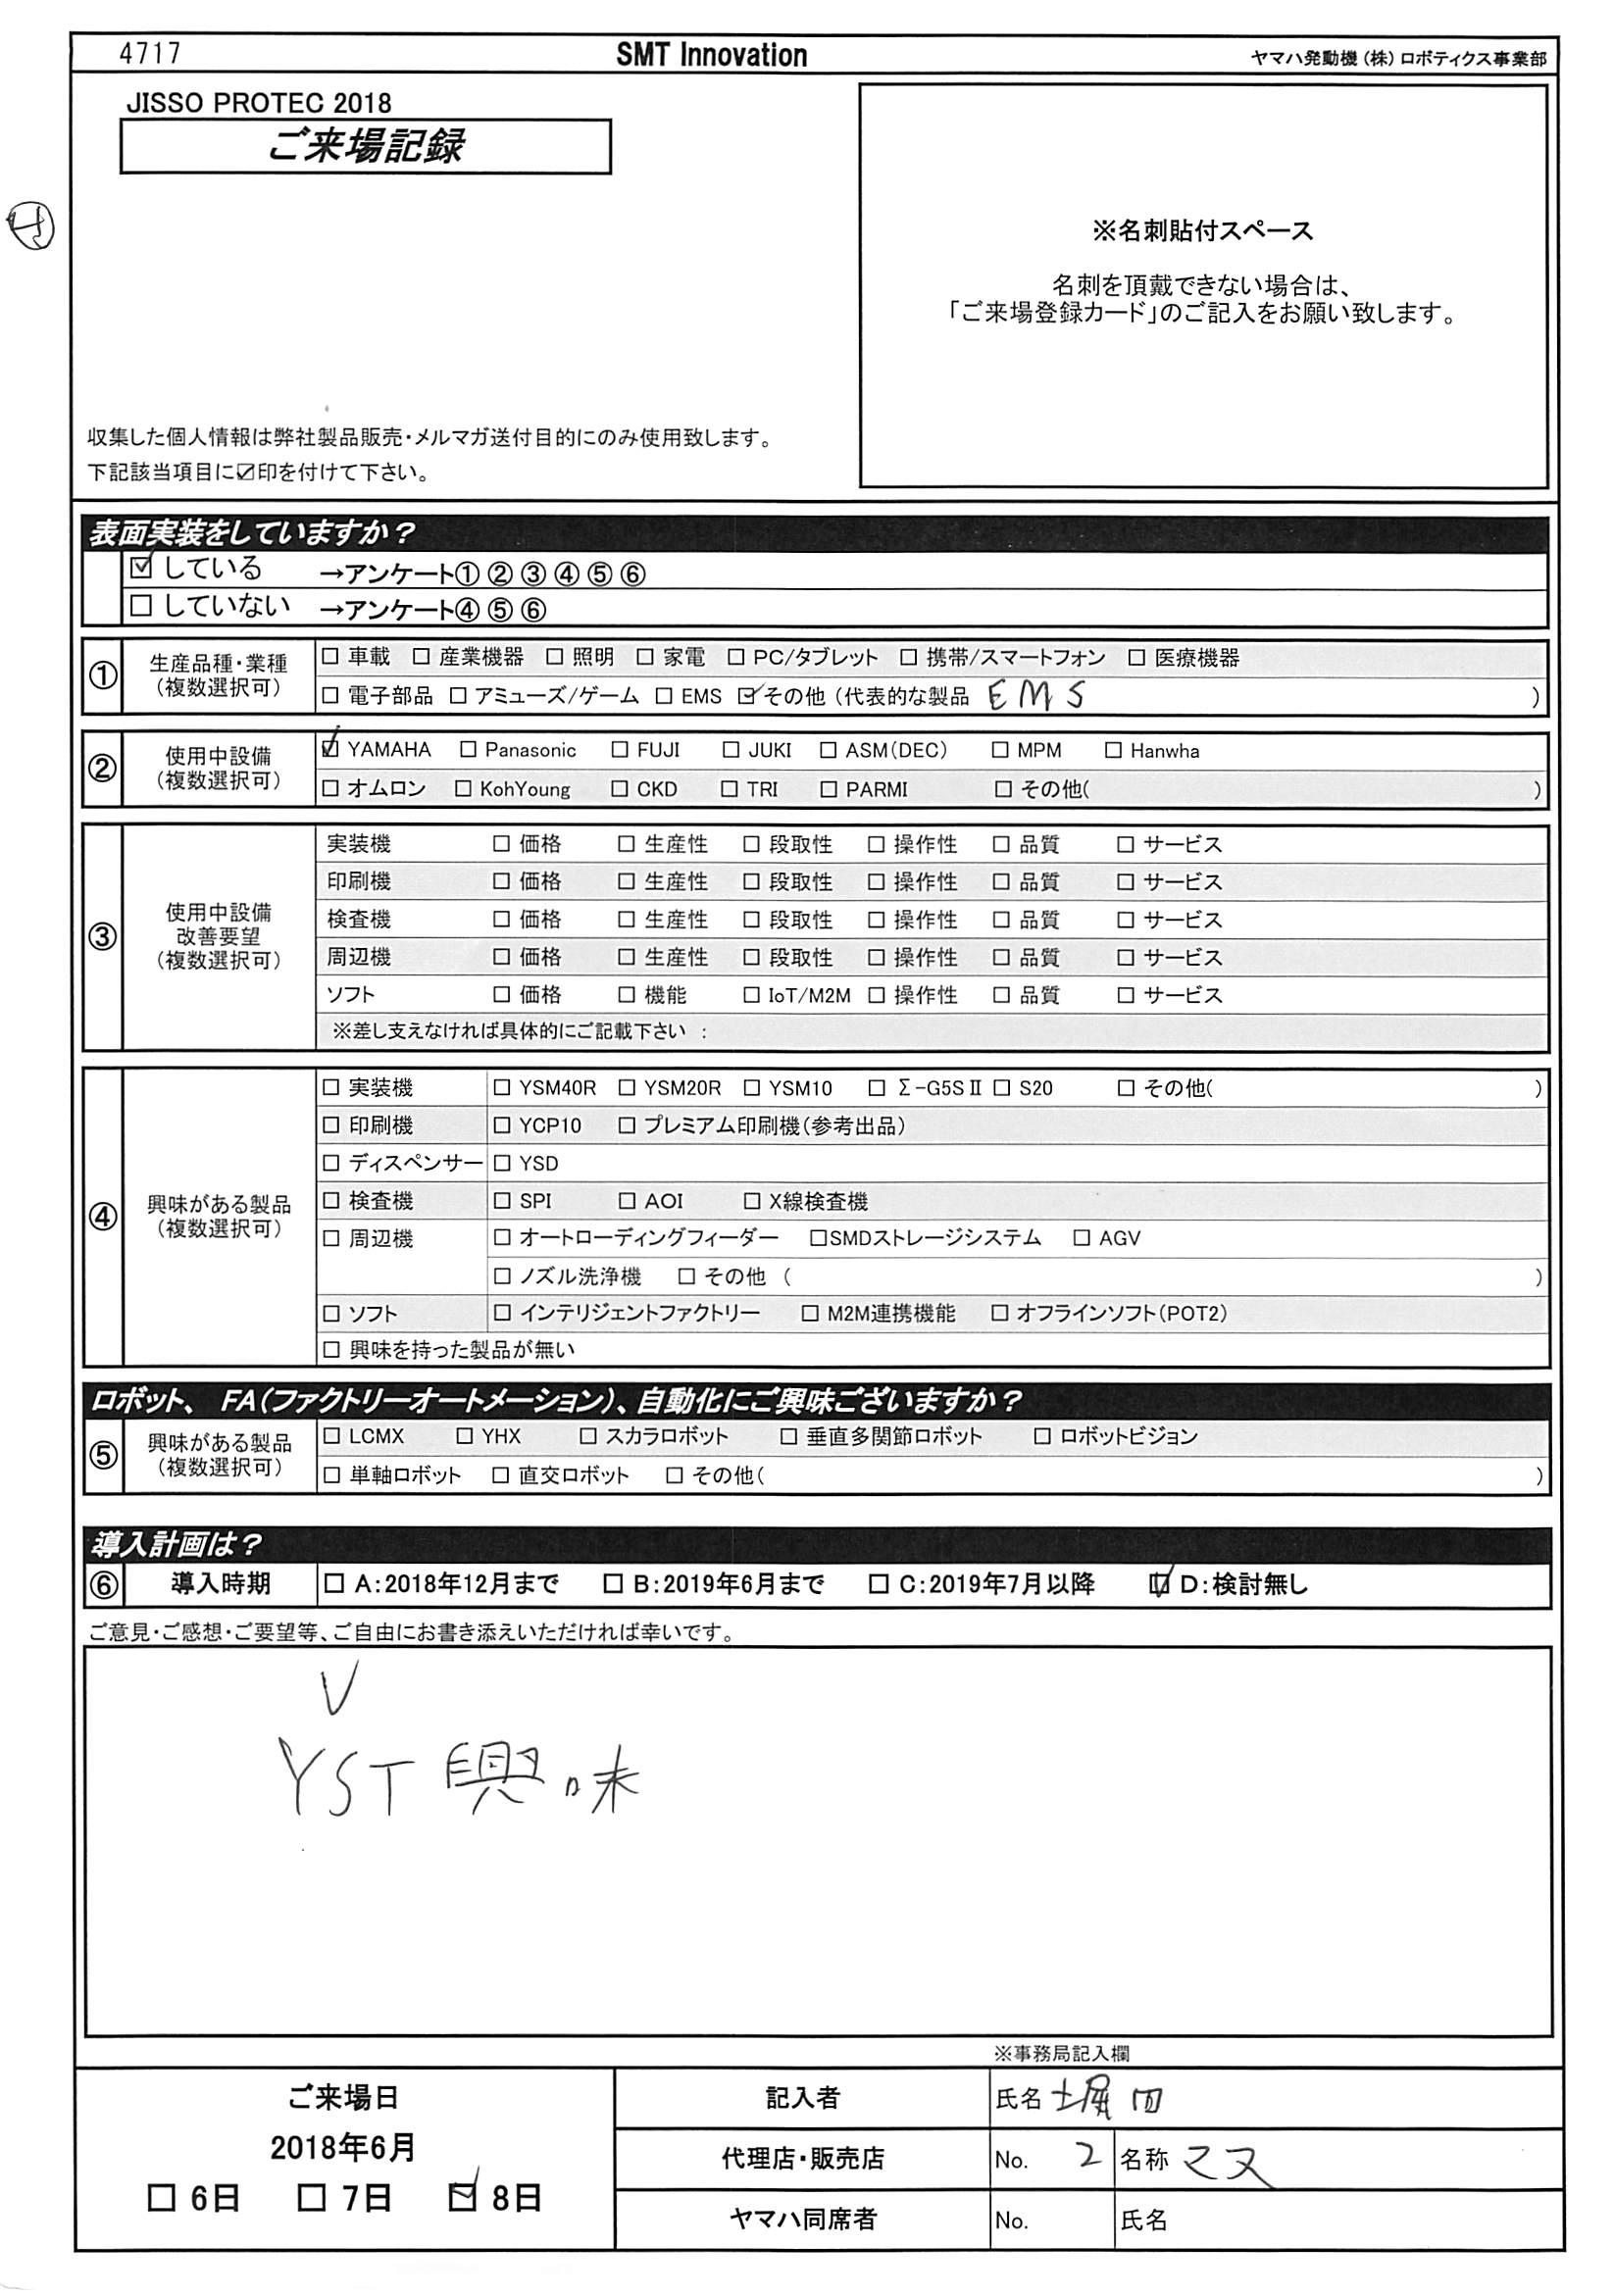 4717 SMT Innovation ヤマハ発動機（株）ロボティクス事業部
JISSO PROTEC 2018
ご来場記録
※名刺貼付スペース
名刺を頂戴できない場合は、
「ご来場登録カード」のご記入をお願い致します。
収集した個人情報は弊社製品販売・メルマガ送付目的にのみ使用致します。
下記該当項目に☑印を付けて下さい。
表面実装をしていますか？
☑ している →アンケート①②③④⑤⑥
□ していない →アンケート④⑤⑥
① 生産品種・業種（複数選択可）
□ 車載 □ 産業機器 □ 照明 □ 家電 □ PC/タブレット □ 携帯/スマートフォン □ 医療機器
□ 電子部品 □ アミューズ/ゲーム □ EMS ☑ その他（代表的な製品 EMS ）
② 使用中設備（複数選択可）
☑ YAMAHA □ Panasonic □ FUJI □ JUKI □ ASM(DEC) □ MPM □ Hanwha
□ オムロン □ KohYoung □ CKD □ TRI □ PARMI □ その他( )
③ 使用中設備改善要望（複数選択可）
実装機 □ 価格 □ 生産性 □ 段取性 □ 操作性 □ 品質 □ サービス
印刷機 □ 価格 □ 生産性 □ 段取性 □ 操作性 □ 品質 □ サービス
検査機 □ 価格 □ 生産性 □ 段取性 □ 操作性 □ 品質 □ サービス
周辺機 □ 価格 □ 生産性 □ 段取性 □ 操作性 □ 品質 □ サービス
ソフト □ 価格 □ 機能 □ IoT/M2M □ 操作性 □ 品質 □ サービス
※差し支えなければ具体的にご記載下さい ：
④ 興味がある製品（複数選択可）
□ 実装機 □ YSM40R □ YSM20R □ YSM10 □ Σ-G5SⅡ □ S20 □ その他( )
□ 印刷機 □ YCP10 □ プレミアム印刷機(参考出品)
□ ディスペンサー □ YSD
□ 検査機 □ SPI □ AOI □ X線検査機
□ 周辺機 □ オートローディングフィーダー □SMDストレージシステム □ AGV
□ ノズル洗浄機 □ その他 ( )
□ ソフト □ インテリジェントファクトリー □ M2M連携機能 □ オフラインソフト(POT2)
□ 興味を持った製品が無い
ロボット、 FA(ファクトリーオートメーション)、自動化にご興味ございますか？
⑤ 興味がある製品（複数選択可）
□ LCMX □ YHX □ スカラロボット □ 垂直多関節ロボット □ ロボットビジョン
□ 単軸ロボット □ 直交ロボット □ その他( )
導入計画は？
⑥ 導入時期 □ A:2018年12月まで □ B:2019年6月まで □ C:2019年7月以降 ☑ D:検討無し
ご意見・ご感想・ご要望等、ご自由にお書き添えいただければ幸いです。
YST 興味
※事務局記入欄
ご来場日
2018年6月
□ 6日 □ 7日 ☑ 8日
記入者 氏名 堀田
代理店・販売店 No. 2 名称
ヤマハ同席者 No. 氏名